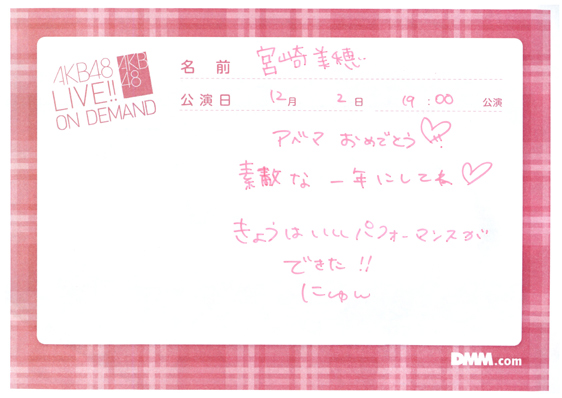 AKB48
LIVE!!
ON DEMAND
AKB
48
名前 宮崎美穂
公演日 12月 2日 19:00 公演
アベマ おめでとう♡!!
素敵な 一年にしてね♡
きょうはいいパフォーマンスが
できた!!
にゅん
DMM.com